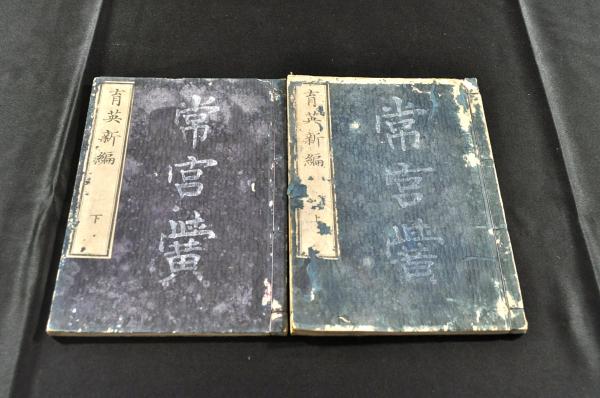 常宮黌
育英新編 上
常宮黌
育英新編 下